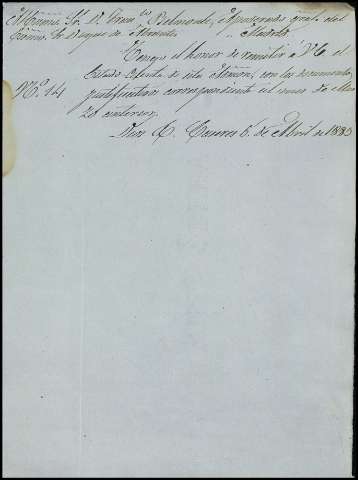 Sr. D. Belmonte, Apoderado gral. del
Excmo. Sr. Duque de Abrantes Madrid
Tengo el honor de remitir á V. el
Nº 14 Estado de Cuenta de esta Admon, con los documentos
justificativos correspondiente al mes de Mar-
zo anterior.
Dios &. Cáceres 6 de Abril de 1883